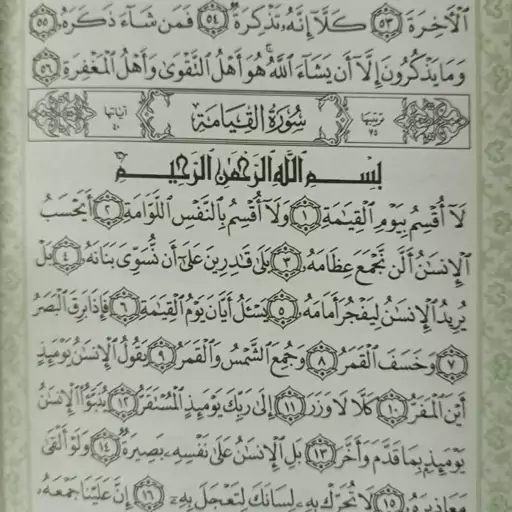 ٱلْأَخِرَةَ ٥٣ كَلَّآ إِنَّهُۥ تَذْكِرَةٌ ٥٤ فَمَن شَآءَ ذَكَرَهُۥ ٥٥
وَمَا يَذْكُرُونَ إِلَّآ أَن يَشَآءَ ٱللَّهُ هُوَ أَهْلُ ٱلتَّقْوَىٰ وَأَهْلُ ٱلْمَغْفِرَةِ ٥٦
ترتيبها ٧٥ سُورَةُ القِيَامَةِ آياتها ٤٠
بِسْمِ ٱللَّهِ ٱلرَّحْمَٰنِ ٱلرَّحِيمِ
لَآ أُقْسِمُ بِيَوْمِ ٱلْقِيَٰمَةِ ١ وَلَآ أُقْسِمُ بِٱلنَّفْسِ ٱللَّوَّامَةِ ٢ أَيَحْسَبُ
ٱلْإِنسَٰنُ أَلَّن نَّجْمَعَ عِظَامَهُۥ ٣ بَلَىٰ قَٰدِرِينَ عَلَىٰٓ أَن نُّسَوِّىَ بَنَانَهُۥ ٤ بَلْ
يُرِيدُ ٱلْإِنسَٰنُ لِيَفْجُرَ أَمَامَهُۥ ٥ يَسْـَٔلُ أَيَّانَ يَوْمُ ٱلْقِيَٰمَةِ ٦ فَإِذَا بَرِقَ ٱلْبَصَرُ
٧ وَخَسَفَ ٱلْقَمَرُ ٨ وَجُمِعَ ٱلشَّمْسُ وَٱلْقَمَرُ ٩ يَقُولُ ٱلْإِنسَٰنُ يَوْمَئِذٍ
أَيْنَ ٱلْمَفَرُّ ١٠ كَلَّا لَا وَزَرَ ١١ إِلَىٰ رَبِّكَ يَوْمَئِذٍ ٱلْمُسْتَقَرُّ ١٢ يُنَبَّؤُا۟ ٱلْإِنسَٰنُ
يَوْمَئِذٍۭ بِمَا قَدَّمَ وَأَخَّرَ ١٣ بَلِ ٱلْإِنسَٰنُ عَلَىٰ نَفْسِهِۦ بَصِيرَةٌ ١٤ وَلَوْ أَلْقَىٰ
مَعَاذِيرَهُۥ ١٥ لَا تُحَرِّكْ بِهِۦ لِسَانَكَ لِتَعْجَلَ بِهِۦٓ ١٦ إِنَّ عَلَيْنَا جَمْعَهُۥ